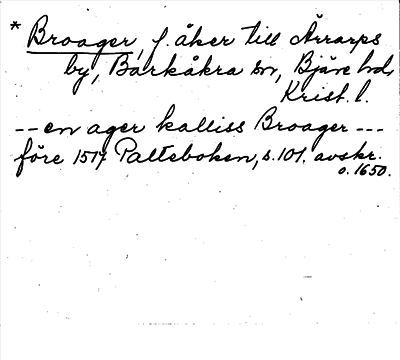 * Broager, f. åker till Ärrarps
by, Barkåkra sn, Bjäre hd,
Krist. l.
-- en ager kalliss Broager ---
före 1514 Palteboken, s. 101. avskr.
o. 1650.